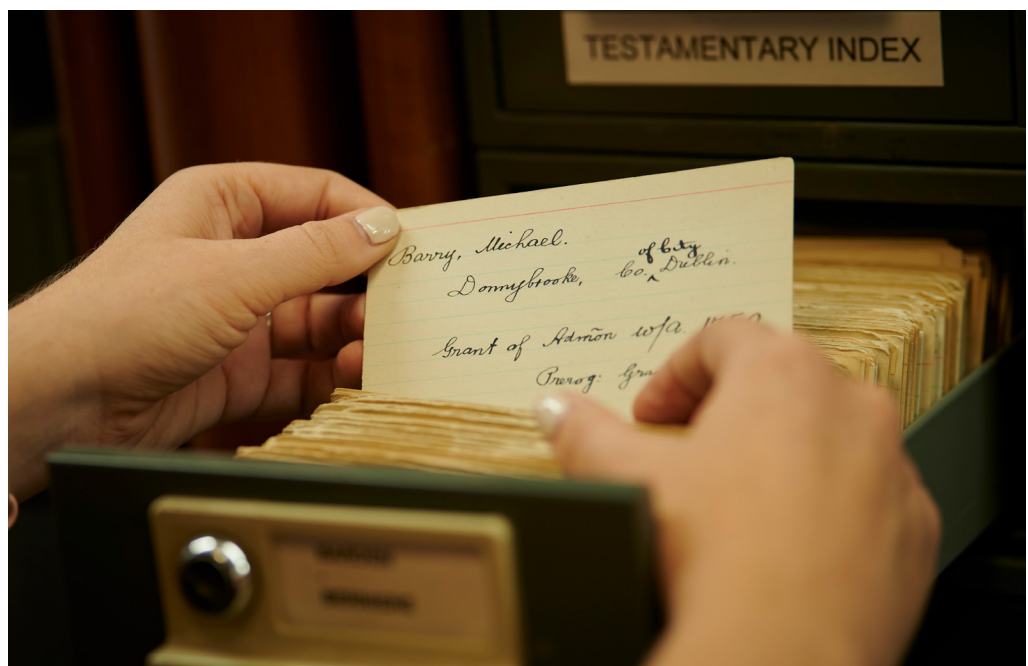 TESTAMENTARY INDEX
Barry, Michael.
Donnybrooke, Co. ‸ of City Dublin.
Grant of Admõn w/a
Prerog: